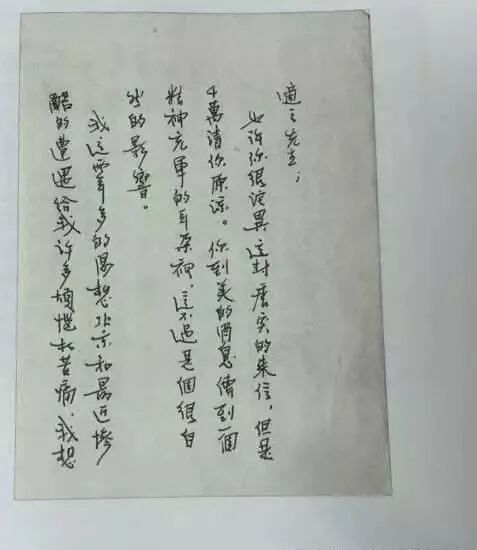 適之先生；
也許你很詫異這封唐突的來信，但是
千萬請你原諒。你到美的消息傳到一個
精神充軍的耳朵裡，這不過是個很自
然的影響。
我這兩年多的渴想北京和最近慘
酷的遭遇給我許多煩惱和苦痛．我想